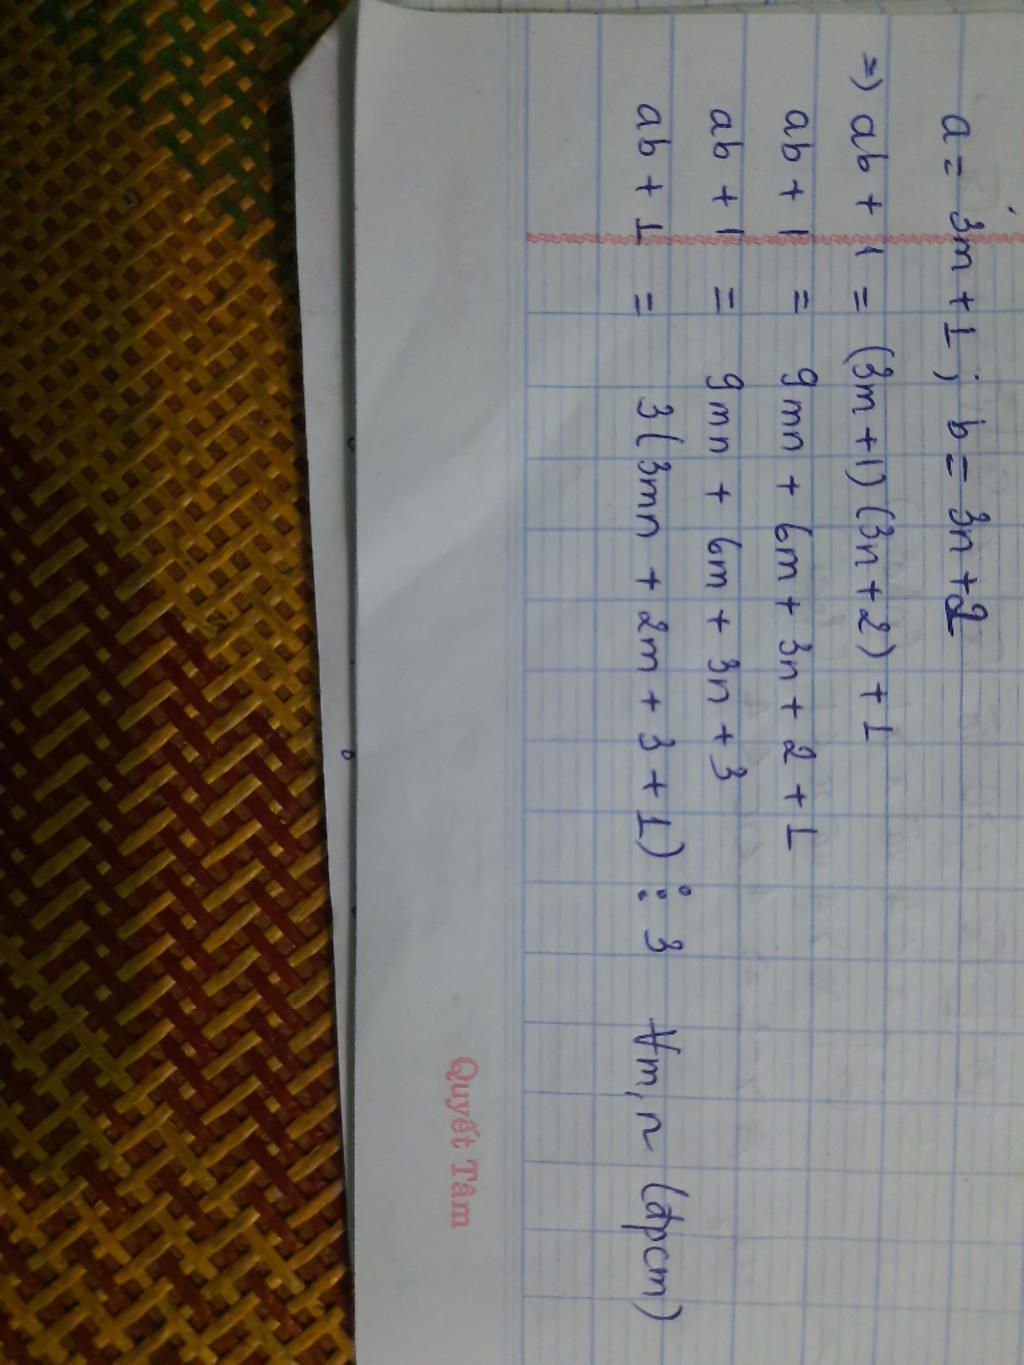 a = 3m + 1 ; b = 3n + 2
=) ab + 1 = (3m + 1) (3n + 2) + 1
ab + 1 = 9mn + 6m + 3n + 2 + 1
ab + 1 = 9mn + 6m + 3n + 3
ab + 1 = 3(3mn + 2m + 3 + 1) ⋮ 3 ∀m, n (đpcm)
Quyết Tâm